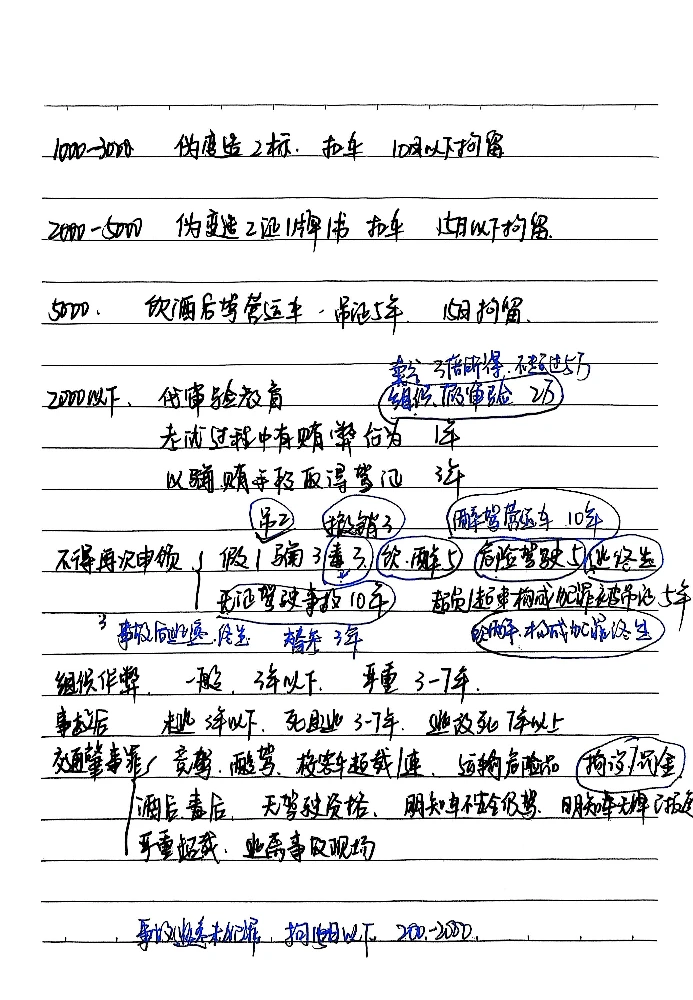 1000-3000 伪变造2标. 扣车 10日以下拘留
2000-5000 伪变造2证1牌1书 扣车 15日以下拘留.
5000. 饮酒后驾营运车. 吊证5年. 15日拘留.
3倍所得.不超过5万
2000以下. 代审验教育 组织.假审验 2万
考试过程中有贿弊行为 1年
以骗贿手段取得驾证 3年
吊2 撤销3 醉驾营运车 10年
不得再次申领 假1 骗3 毒3. 饮.醉5 危险驾驶5 逃终生
无证驾驶事故10年 超员/超速构成犯罪被吊证5年
3 事故后逃逸.终生 替考 3年 饮醉.构成犯罪终生
组织作弊. 一般. 3年以下. 严重 3-7年.
事故后 未逃3年以下. 死且逃3-7年. 逃致死7年以上
交通肇事罪 竞驾.醉驾.校客车超载/速. 运输危险品 拘役/罚金
酒后.毒后. 无驾驶资格. 明知车不安全仍驾. 明知车无牌已报废
严重超载. 逃离事故现场
事故逃逸未犯罪. 拘15日以下. 200-2000.